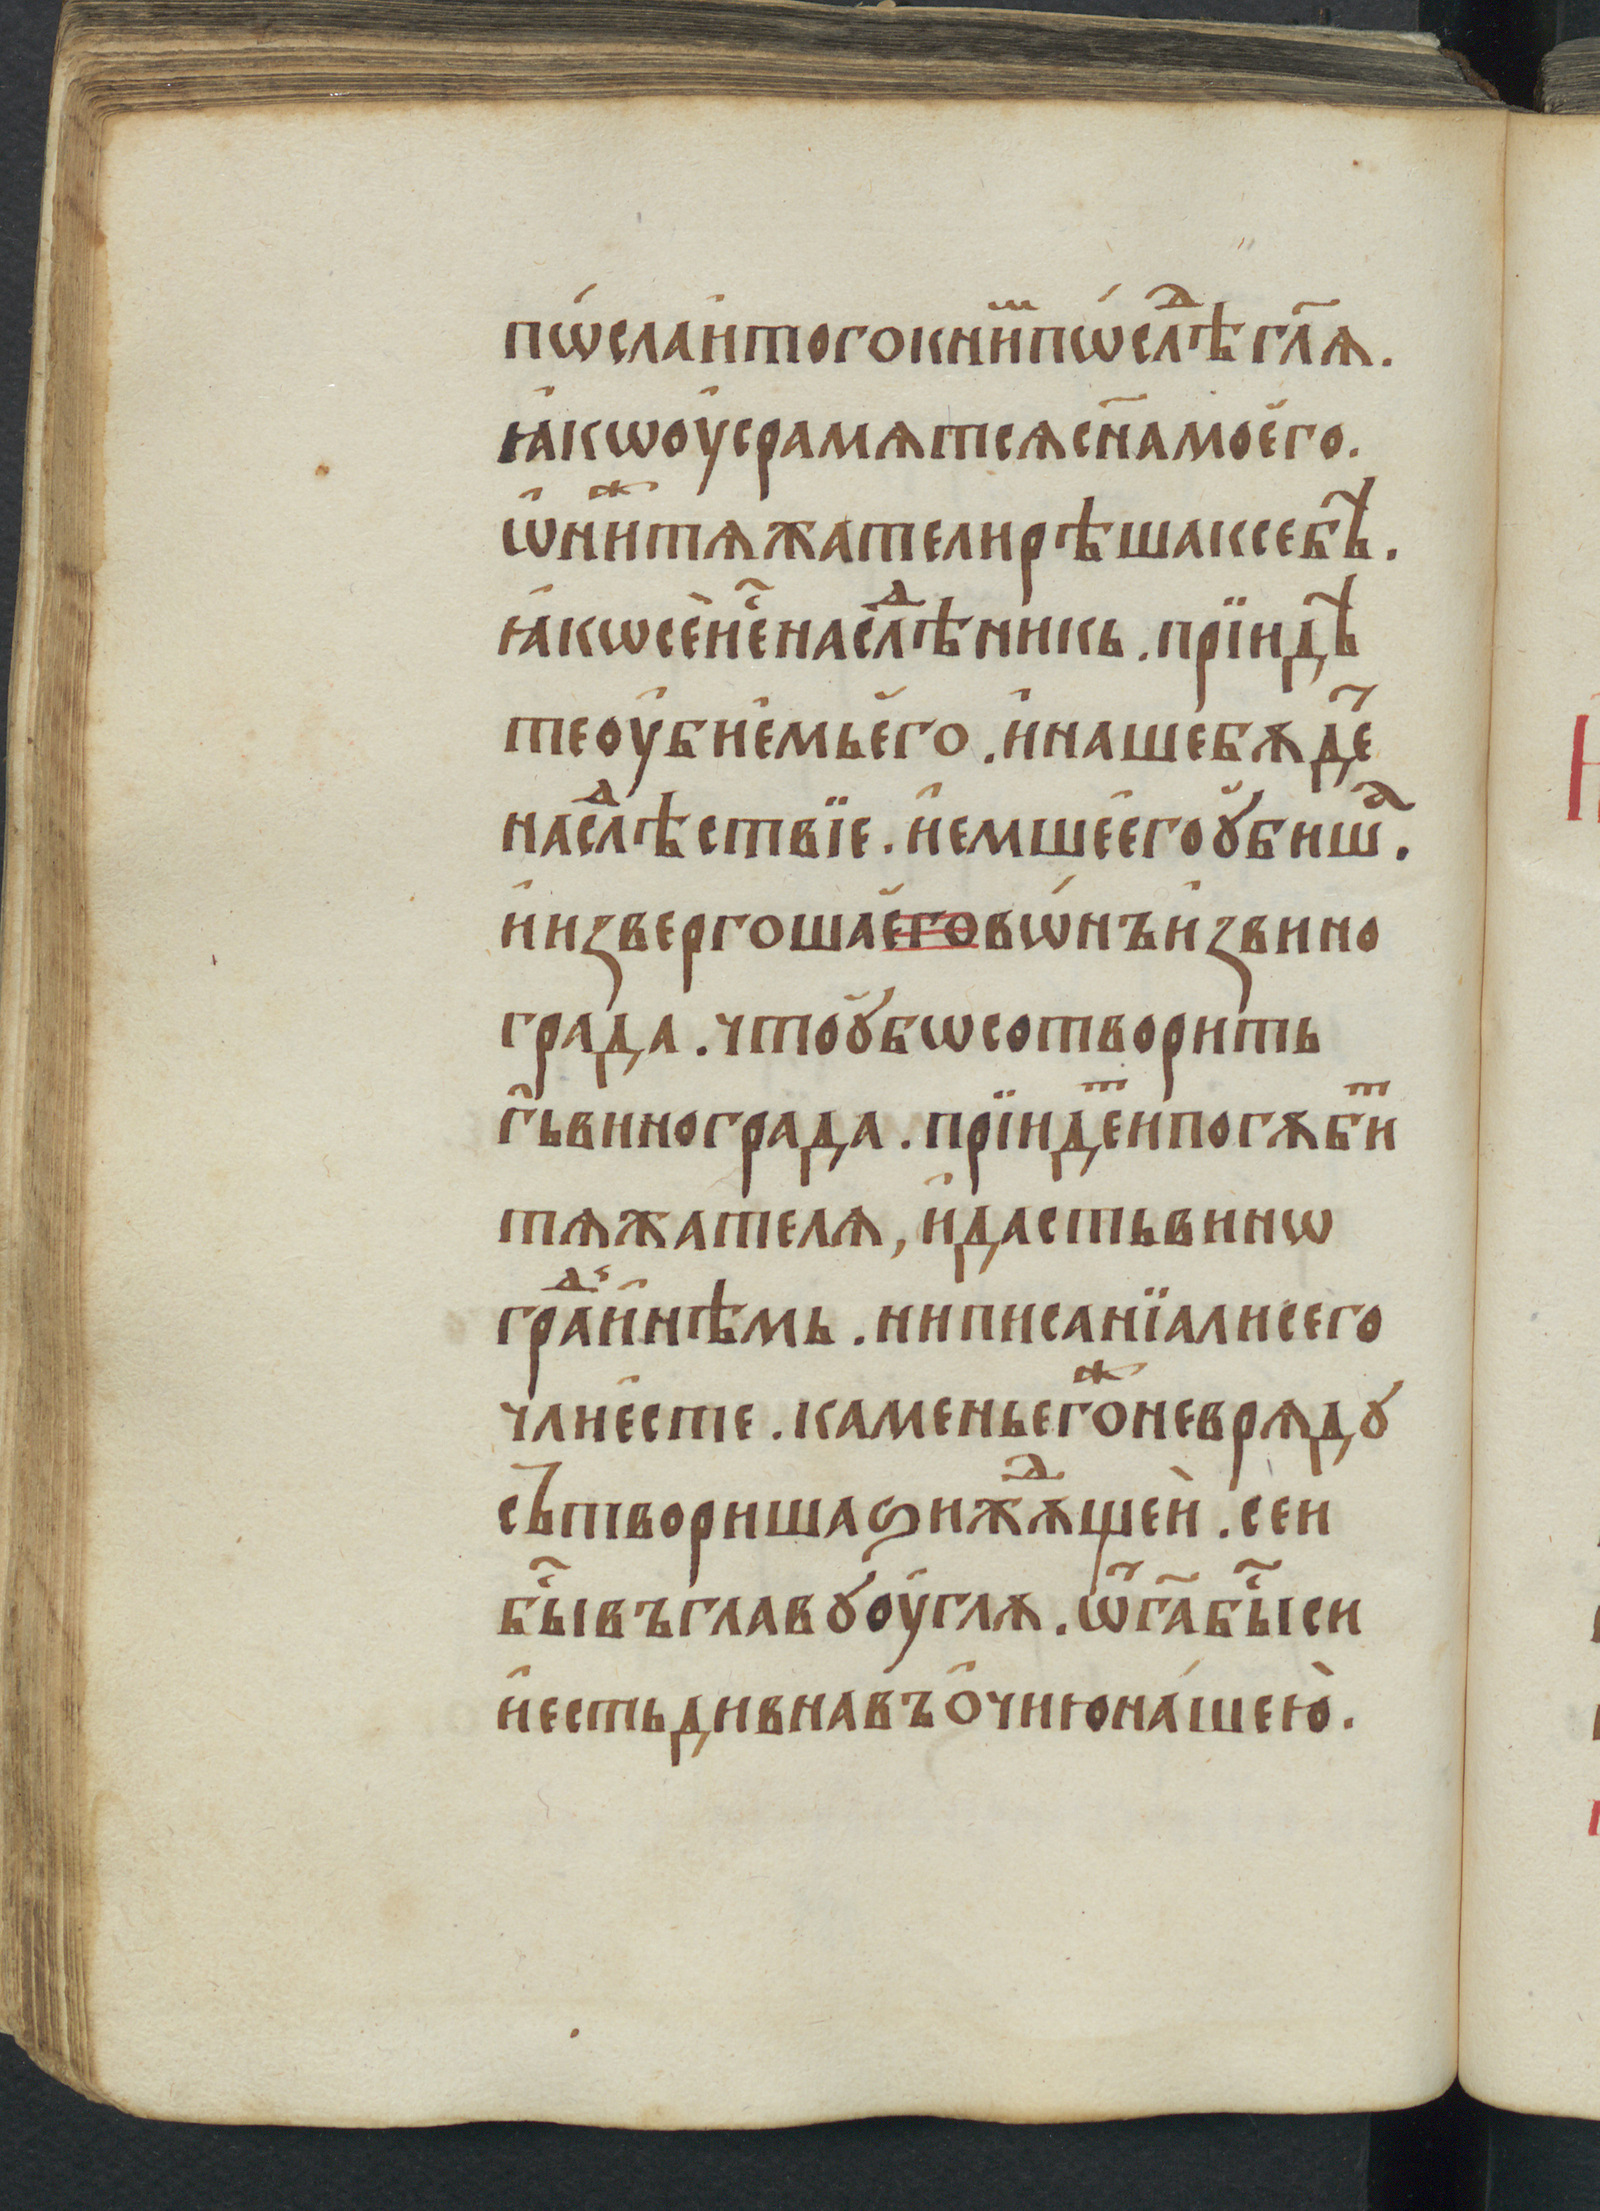 пѡ́сла и҆ того к ни́ⷨ пѡ́слѣⷣ гл҃ѧ.
ꙗ҆кѡ оу҆срамѧтсѧ сн҃а моего.
ѡ҆ниⷤ тѧжатели рѣша к себѣ.
ꙗ҆кѡ се и҆ⷭ҇ наслѣⷣникь. прїидѣ
те оу҆бие҆мь е҆го. и҆ наше бѫде҃
наслѣⷣствїе. и҆ емше е҆го ꙋбишⷶ.
и҆ извергоша е҆го вѡ́нъ и҆з вино
града. что ꙋбѡ сотворить
г҃ь винограда. прїидеⷮ и погѫбиⷮ
тѧжателѧ, и҆ дасть винѡ
граⷣ и҆нѣмь. ни писанїа ли сего
чли е҆сте. камень егоⷤ не врѧдꙋ
сътвориша ѕижѫⷣщеи. сеи
бы́ⷭ҇ въ главꙋ оу҆глѧ. ѿ га҃ бы́ⷭ҇ си
и҆ есть дивна въ о҆чию на́шею.